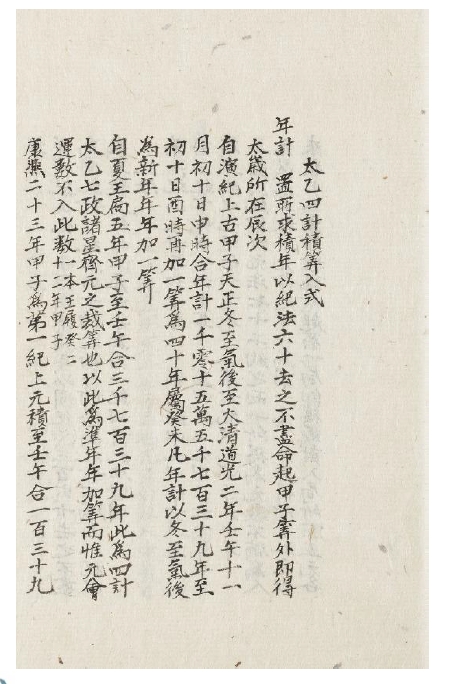 太乙四計積筭入式
年計　置所求積年以紀法六十去之不盡命起甲子筭外即得
太歲所在辰次
自演紀上古甲子天正冬至氣後至大清道光二年壬午十一
月初十日申時合年計一千零十五萬五千七百三十九年至
初十日酉時再加一筭爲四十年屬癸未凡年計以冬至氣後
爲新年年年加一筭
自夏王扃五年甲子至壬午合三千七百三十九年此爲四計
太乙七政諸星齊元之裁筭也以此爲準年年加筭而惟元會
運數不入此数一本王履癸二十二年甲子
康熙二十三年甲子爲第一紀上元積至壬午合一百三十九